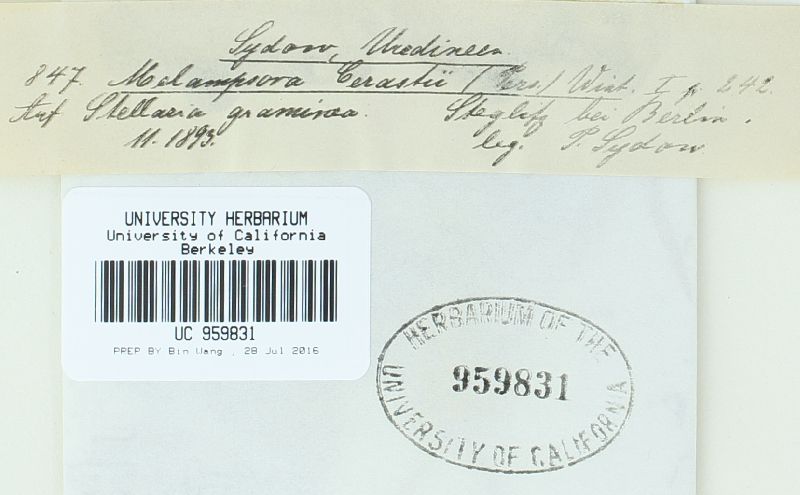 Sydow, Uredineen.
847. Melampsora Cerastii (Pers.) Wint. I p. 242.
Auf Stellaria graminea. Steglitz bei Berlin.
11. 1893. leg. P. Sydow
UNIVERSITY HERBARIUM
University of California
Berkeley
UC 959831
PREP BY Bin Wang , 28 Jul 2016
HERBARIUM OF THE
959831
UNIVERSITY OF CALIFORNIA